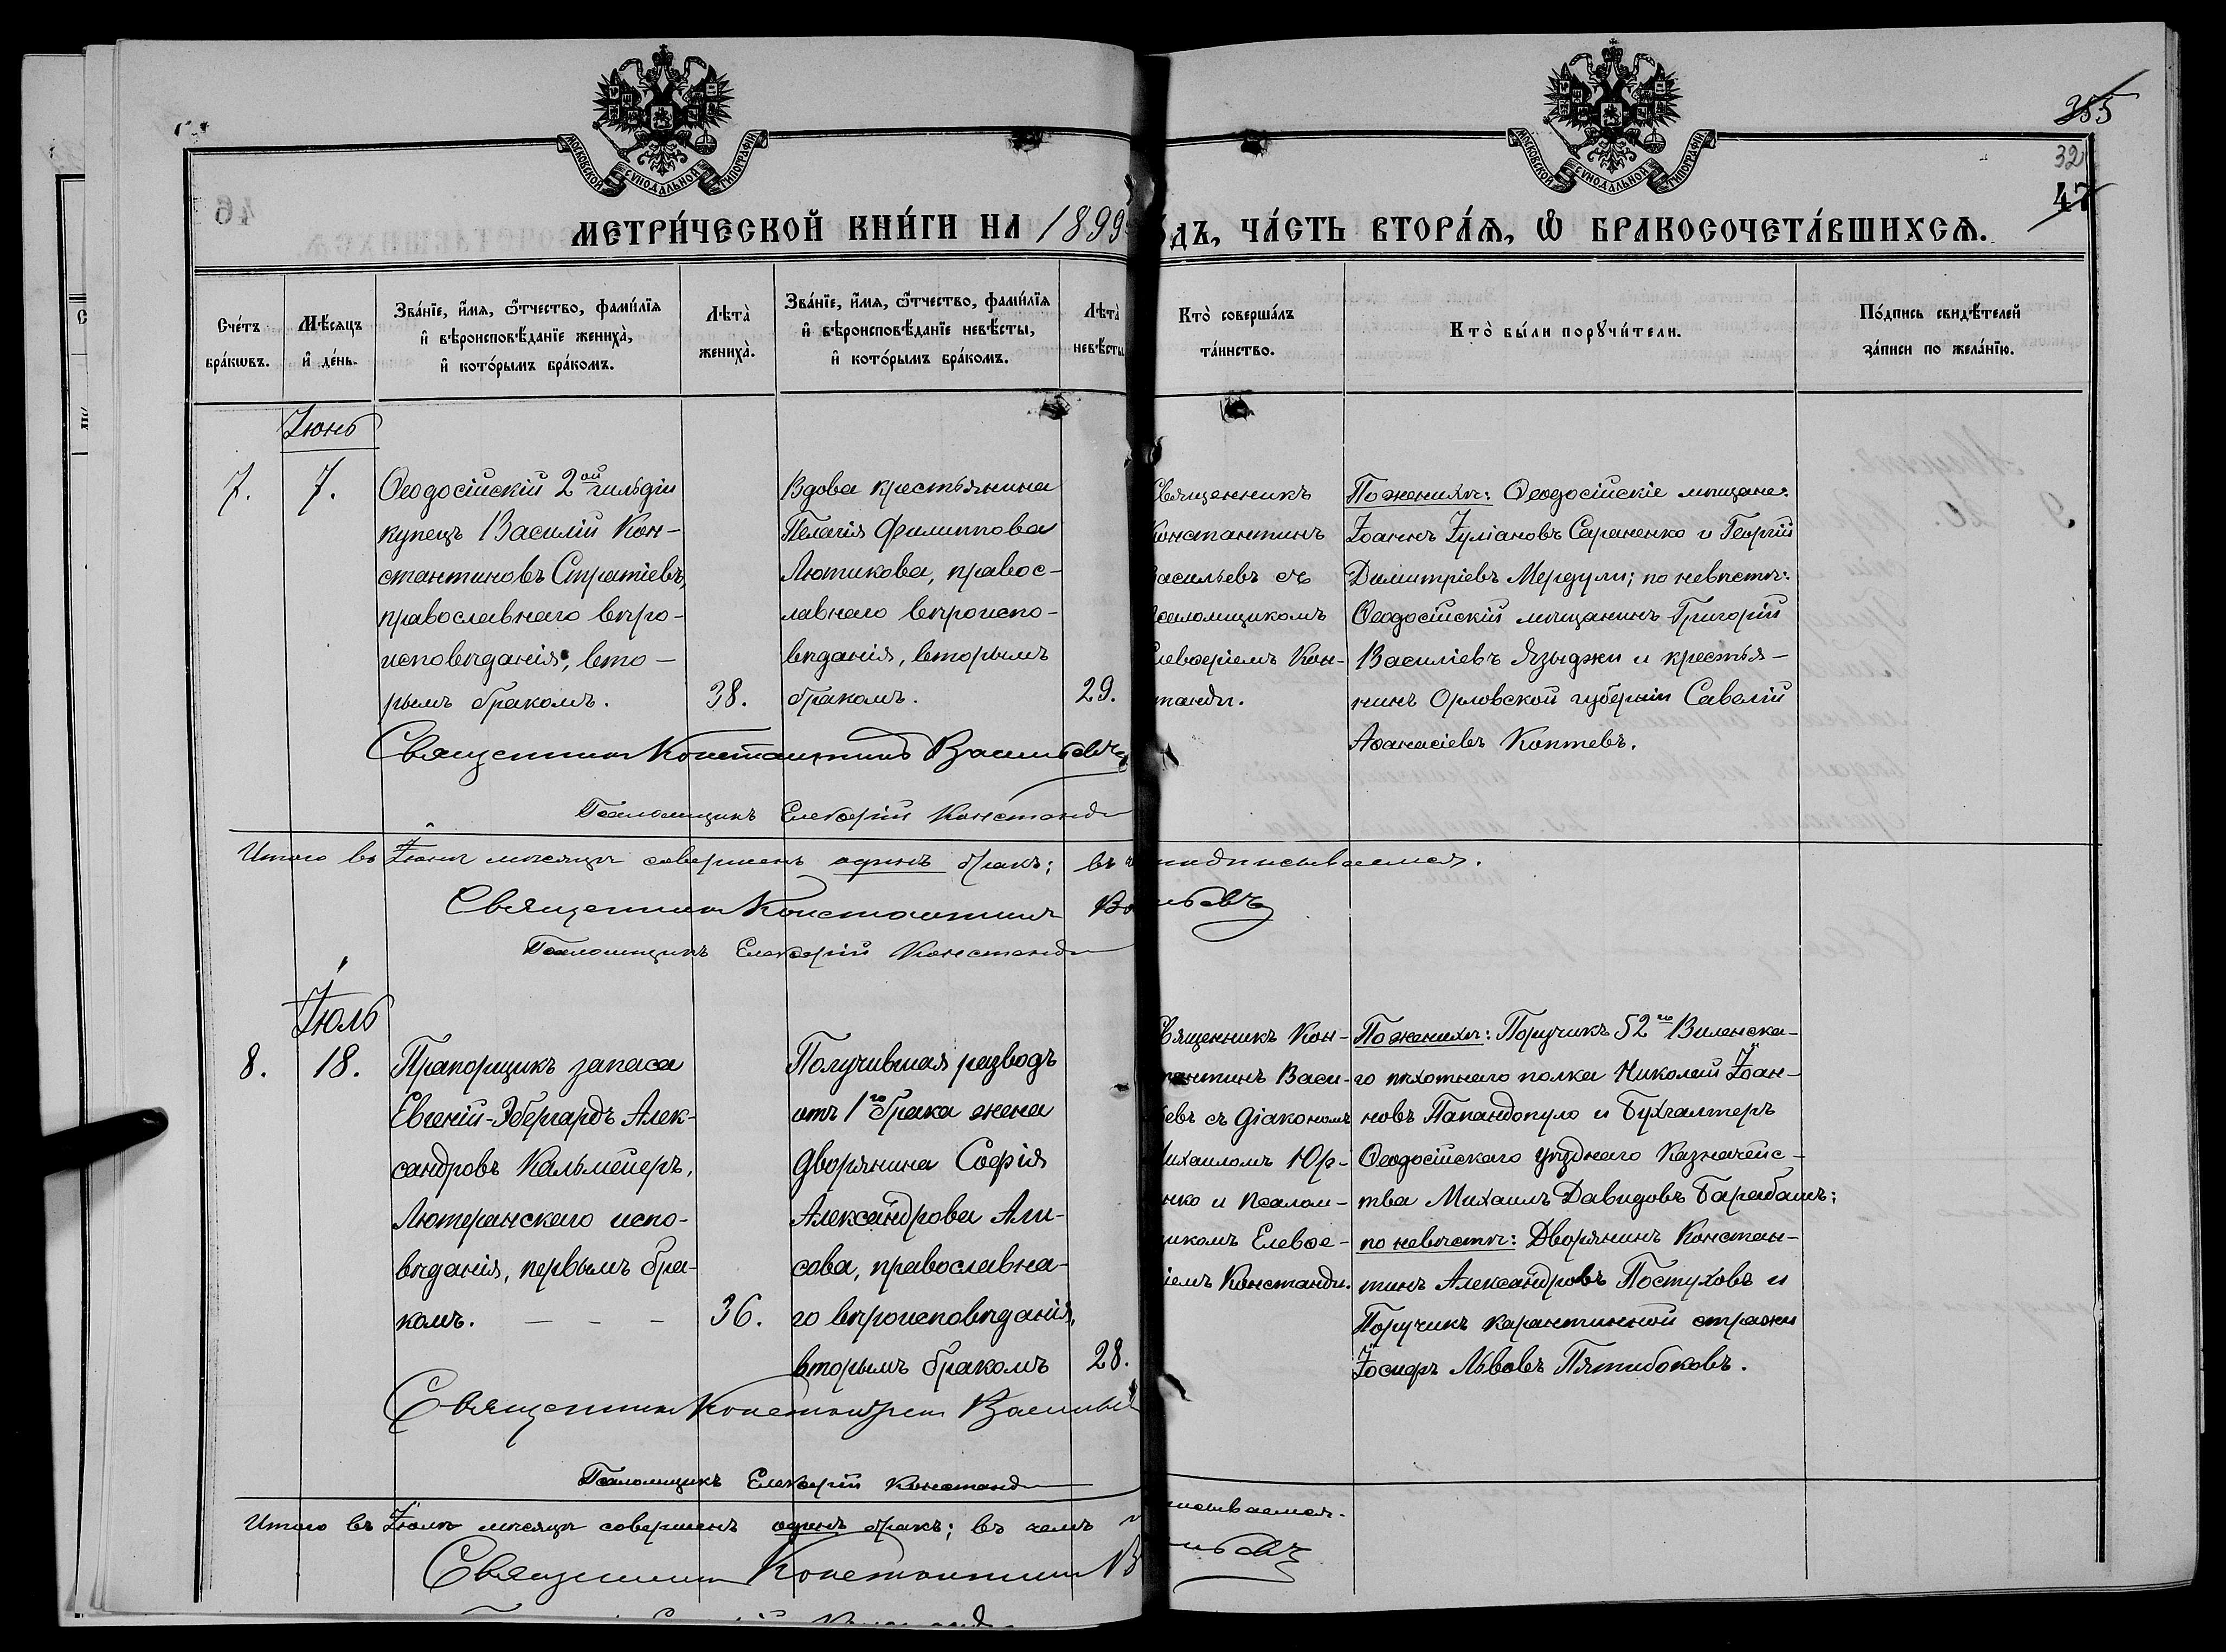 МОСКОВСКОЙ СУНОДАЛЬНОЙ ТИПОГРАФИ
МОСКОВСКОЙ СУНОДАЛЬНОЙ ТИПОГРАФИ
355
32
47
МЕТРИ́ЧЕСКОЙ КНИ́ГИ НА 1899
ДЪ, ЧА́СТЬ ВТОРА́Ѧ, Ѿ БРАКОСОЧЕТА́ВШИХСѦ.
Сче́тъ бра́кѡвъ.
Мѣ́сяцъ и҆ де́нь.
Зва́нїе, и҆́мѧ, ѻ҆́тчество, фами́лїѧ и҆ вѣроисповѣ́данїе жениха̀, и҆ кото́рымъ бра́комъ.
Лѣта̀ жениха̀.
Зва́нїе, и҆́мѧ, ѻ҆́тчество, фами́лїѧ и҆ вѣроисповѣ́данїе невѣ́сты, и҆ кото́рымъ бра́комъ.
Лѣта̀ невѣ́сты
Кто̀ соверша́лъ та́инство.
Кто̀ бы́ли порꙋчи́тели.
По́дпись свидѣ́телей за́писи по жела́нїю.
Іюнь
7.
7.
Ѳеодосійскій 2ой гильдіи
купецъ Василій Кон-
стантиновъ Стратіевъ,
православнаго вѣро-
исповѣданія, вто-
рымъ бракомъ.
38.
Вдова крестьянина
Пелагія Филиппова
Лютикова, правос-
лавнаго вѣроиспо-
вѣданія, вторымъ
бракомъ.
29.
Священникъ
Константинъ
Васильевъ съ
псаломщикомъ
Елевѳеріемъ Кон-
танди.
По женихѣ: Ѳеодосійскіе мѣщане:
Іоаннъ Іуліановъ Сараненко и Георгій
Димитріевъ Мердули; по невѣстѣ:
Ѳеодосійскій мѣщанинъ Григорій
Василіевъ Языджи и крестья-
нинъ Орловской губерніи Савелій
Аѳанасіевъ Коптевъ.
Священникъ Константинъ Васильевъ
Псаломщикъ Елевѳерій Констанди
Итого въ Іюнѣ мѣсяцѣ совершенъ одинъ бракъ; въ ч подписываемся.
Священникъ Константинъ Ва льевъ
Псаломщикъ Елевѳерій Констанди
Іюль
8.
18.
Прапорщикъ запаса
Евгеній-Эбергардъ Алек-
сандровъ Кальмейеръ,
Лютеранскаго испо-
вѣданія, первымъ бра-
комъ. - - -
36.
Получившая разводъ
отъ 1го брака жена
дворянина Софія
Александрова Али-
сова, православна-
го вѣроисповѣданія,
вторымъ бракомъ
28.
Священникъ Кон-
стантинъ Васи-
евъ съ діакономъ
Михаиломъ Юр-
нко и псалом-
икомъ Елевѳе-
іемъ Констанди.
По женихѣ: Поручикъ 52го Виленска-
го пѣхотнаго полка Николай Іоан-
новъ Папандопуло и Бухгалтеръ
Ѳеодосійскаго уѣзднаго Казначейс-
тва Михаилъ Давидовъ Барабашъ;
по невѣстѣ: Дворянинъ Констан-
тинъ Александровъ Постуховъ и
Поручикъ карантинной стражи
Іосифъ Львовъ Пятибоковъ.
Священникъ Константинъ Васильев
Псаломщикъ Елевѳерій Констанди
Итого въ Іюлѣ мѣсяцѣ совершенъ одинъ бракъ; въ чемъ п исываемся.
Священникъ Константинъ В льевъ